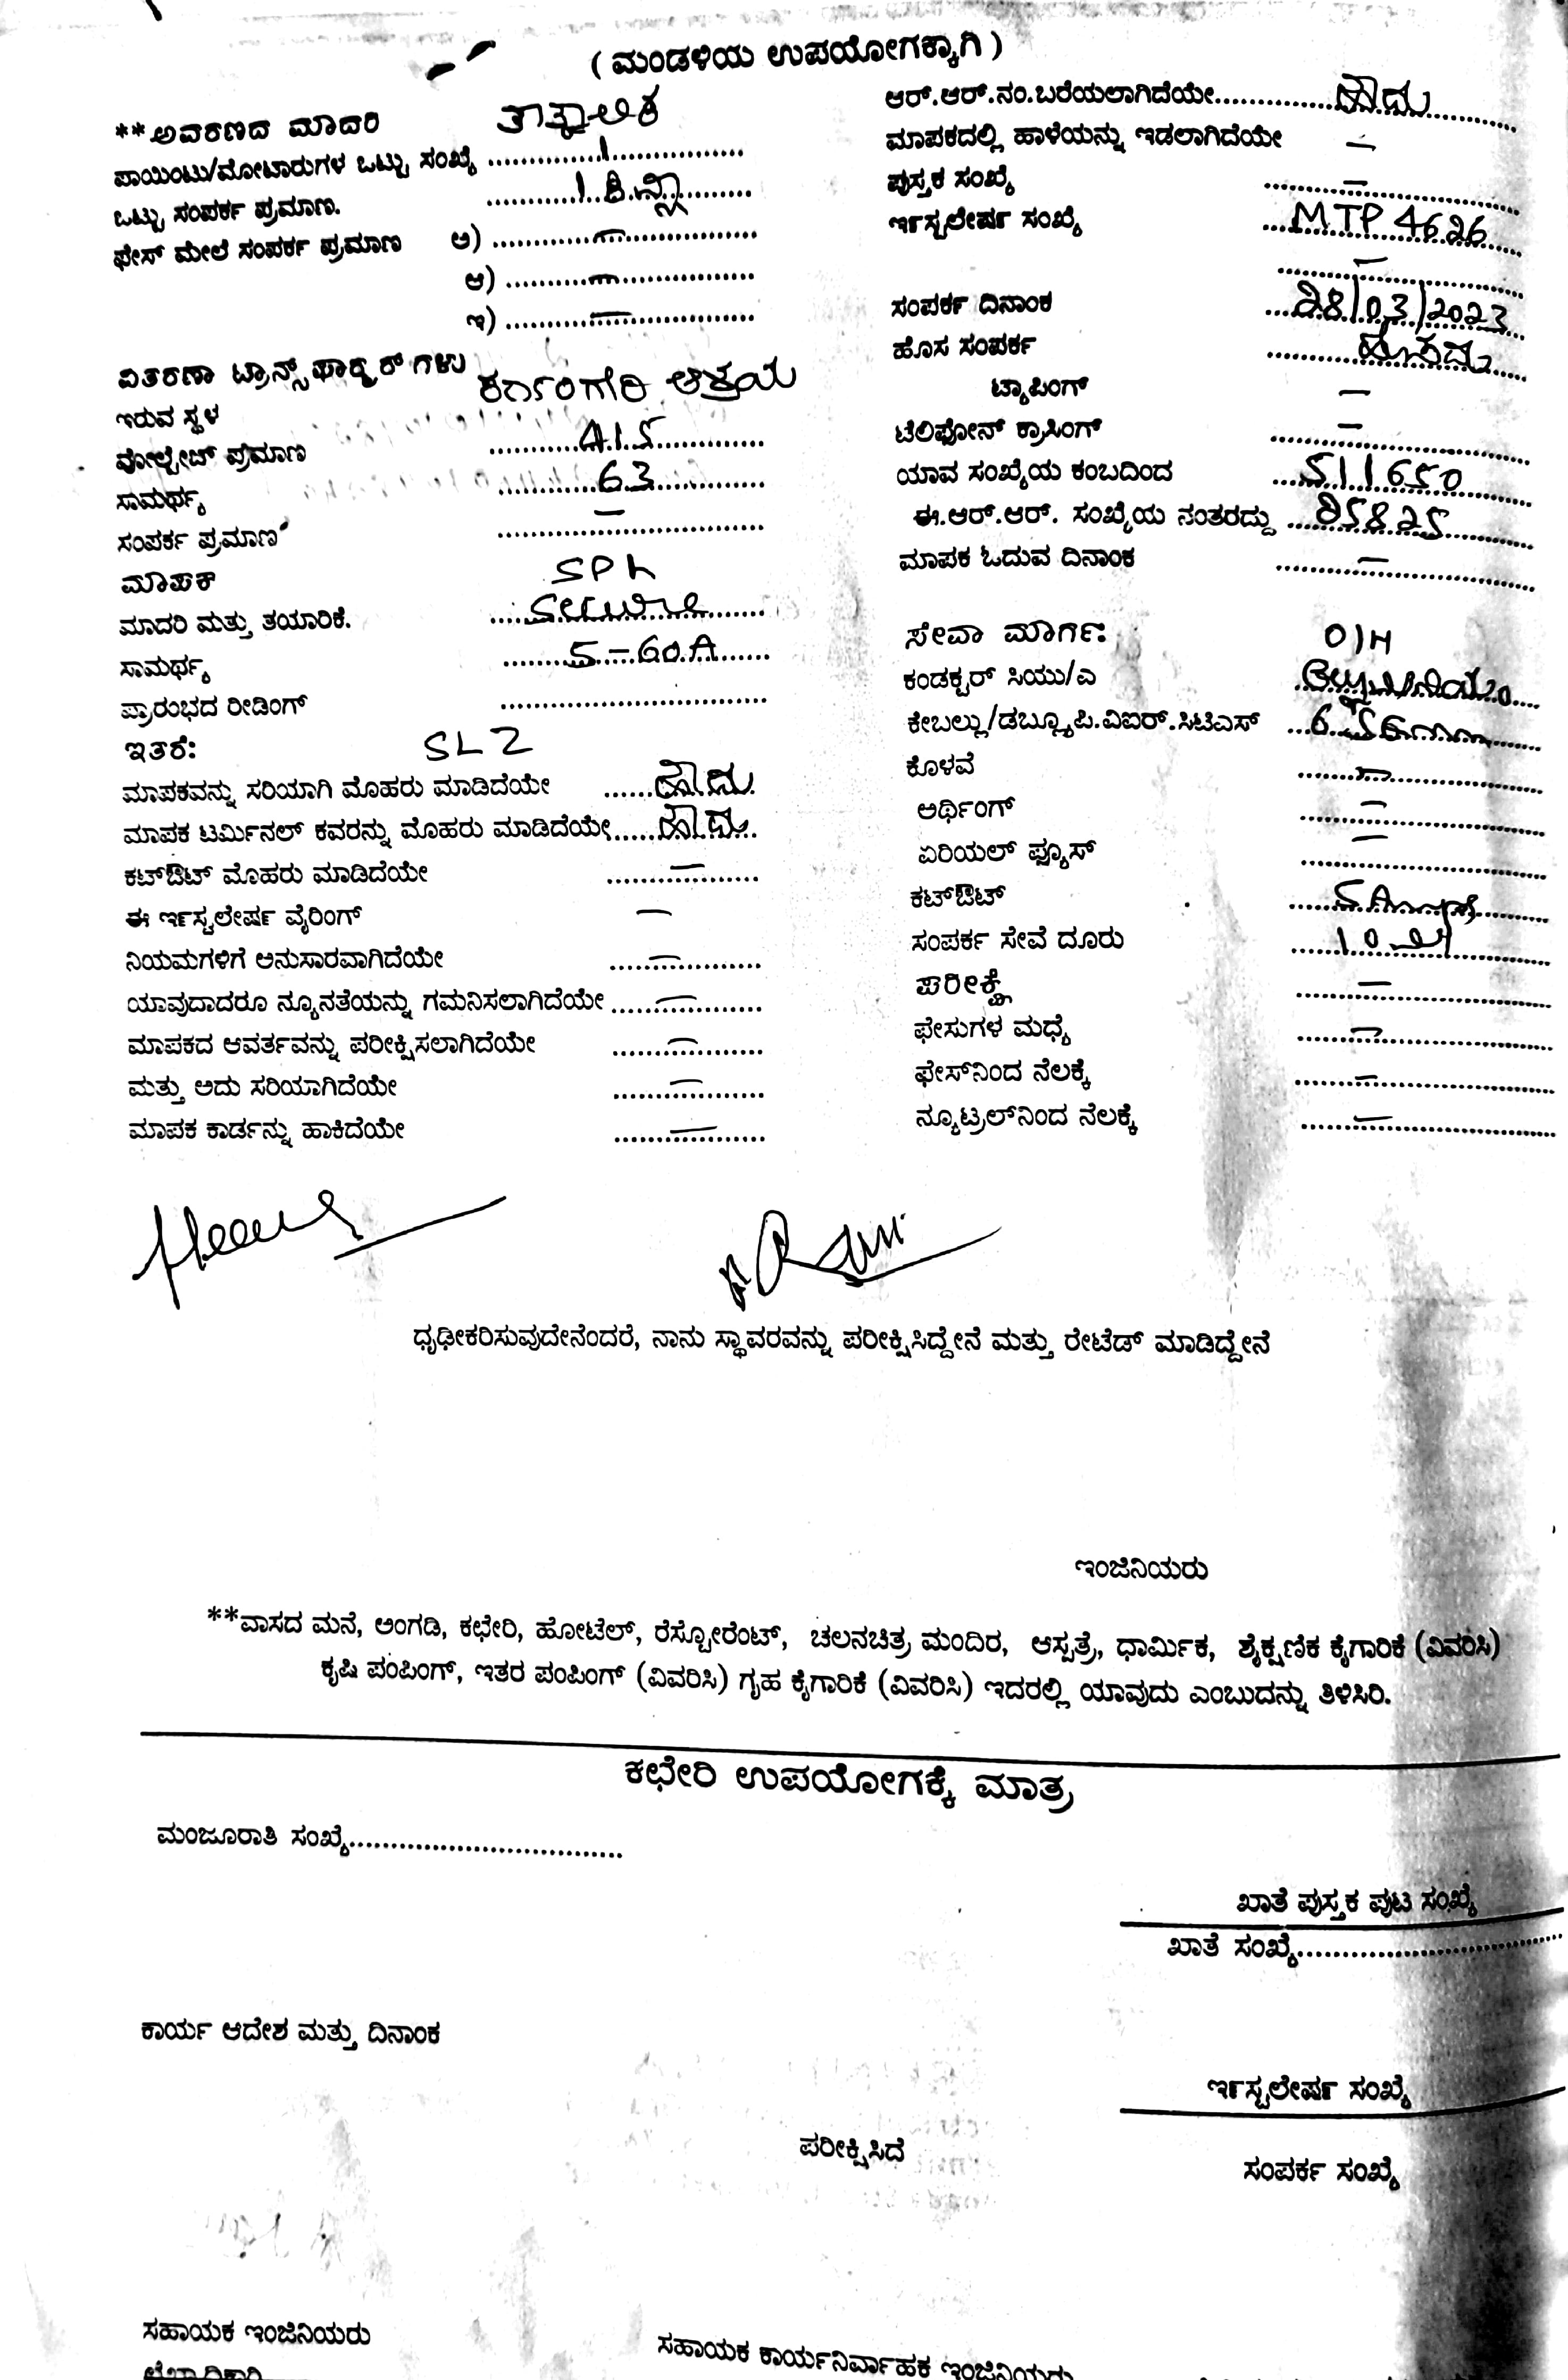 ( ಮಂಡಳಿಯ ಉಪಯೋಗಕ್ಕಾಗಿ )
**ಅವರಣದ ಮಾದರಿ ತಾತ್ಕಾಲಿಕ
ಪಾಯಿಂಟು/ಮೋಟಾರುಗಳ ಒಟ್ಟು ಸಂಖ್ಯೆ 1
ಒಟ್ಟು ಸಂಪರ್ಕ ಪ್ರಮಾಣ. 1
ಫೇಸ್ ಮೇಲೆ ಸಂಪರ್ಕ ಪ್ರಮಾಣ ಅ) —
ಆ) —
ಇ) —
ವಿತರಣಾ ಟ್ರಾನ್ಸ್‌ಫಾರ್ಮರ್‌ಗಳು
ಇರುವ ಸ್ಥಳ ಆಶ್ರಯ
ವೋಲ್ಟೇಜ್ ಪ್ರಮಾಣ 415
ಸಾಮರ್ಥ್ಯ 63
ಸಂಪರ್ಕ ಪ್ರಮಾಣ —
ಮಾಪಕ SPh
ಮಾದರಿ ಮತ್ತು ತಯಾರಿಕೆ. Secure
ಸಾಮರ್ಥ್ಯ 5-60A
ಪ್ರಾರಂಭದ ರೀಡಿಂಗ್
ಇತರೆ: SL2
ಮಾಪಕವನ್ನು ಸರಿಯಾಗಿ ಮೊಹರು ಮಾಡಿದೆಯೇ ಹೌದು
ಮಾಪಕ ಟರ್ಮಿನಲ್ ಕವರನ್ನು ಮೊಹರು ಮಾಡಿದೆಯೇ ಹೌದು
ಕಟ್‌ಔಟ್ ಮೊಹರು ಮಾಡಿದೆಯೇ —
ಈ ಇನ್‌ಸ್ಟಲೇಷನ್ ವೈರಿಂಗ್ —
ನಿಯಮಗಳಿಗೆ ಅನುಸಾರವಾಗಿದೆಯೇ —
ಯಾವುದಾದರೂ ನ್ಯೂನತೆಯನ್ನು ಗಮನಿಸಲಾಗಿದೆಯೇ —
ಮಾಪಕದ ಆವರ್ತವನ್ನು ಪರೀಕ್ಷಿಸಲಾಗಿದೆಯೇ —
ಮತ್ತು ಅದು ಸರಿಯಾಗಿದೆಯೇ —
ಮಾಪಕ ಕಾರ್ಡನ್ನು ಹಾಕಿದೆಯೇ —
ಆರ್.ಆರ್.ನಂ.ಬರೆಯಲಾಗಿದೆಯೇ ಹೌದು
ಮಾಪಕದಲ್ಲಿ ಹಾಳೆಯನ್ನು ಇಡಲಾಗಿದೆಯೇ —
ಪುಸ್ತಕ ಸಂಖ್ಯೆ —
ಇನ್‌ಸ್ಟಲೇಷನ್ ಸಂಖ್ಯೆ MTP 4626
—
ಸಂಪರ್ಕ ದಿನಾಂಕ 28/03/2023
ಹೊಸ ಸಂಪರ್ಕ
ಟ್ಯಾಪಿಂಗ್ —
ಟೆಲಿಫೋನ್ ಕ್ರಾಸಿಂಗ್ —
ಯಾವ ಸಂಖ್ಯೆಯ ಕಂಬದಿಂದ 511650
ಈ.ಆರ್.ಆರ್. ಸಂಖ್ಯೆಯ ನಂತರದ್ದು 25825
ಮಾಪಕ ಓದುವ ದಿನಾಂಕ —
ಸೇವಾ ಮಾರ್ಗ: O/H
ಕಂಡಕ್ಟರ್ ಸಿಯು/ಎ
ಕೇಬಲ್ಲು/ಡಬ್ಲ್ಯೂಪಿ.ವಿಐರ್.ಸಿಟಿಎಸ್ 6
ಕೊಳವೆ —
ಅರ್ಥಿಂಗ್ —
ಏರಿಯಲ್ ಫ್ಯೂಸ್ —
ಕಟ್‌ಔಟ್ 5Amps
ಸಂಪರ್ಕ ಸೇವೆ ದೂರು 10
ಪರೀಕ್ಷೆ —
ಫೇಸುಗಳ ಮಧ್ಯೆ —
ಫೇಸ್‌ನಿಂದ ನೆಲಕ್ಕೆ —
ನ್ಯೂಟ್ರಲ್‌ನಿಂದ ನೆಲಕ್ಕೆ —
ಧೃಢೀಕರಿಸುವುದೇನೆಂದರೆ, ನಾನು ಸ್ಥಾವರವನ್ನು ಪರೀಕ್ಷಿಸಿದ್ದೇನೆ ಮತ್ತು ರೇಟೆಡ್ ಮಾಡಿದ್ದೇನೆ
ಇಂಜಿನಿಯರು
**ವಾಸದ ಮನೆ, ಅಂಗಡಿ, ಕಛೇರಿ, ಹೋಟೆಲ್, ರೆಸ್ಟೋರೆಂಟ್, ಚಲನಚಿತ್ರ ಮಂದಿರ, ಆಸ್ಪತ್ರೆ, ಧಾರ್ಮಿಕ, ಶೈಕ್ಷಣಿಕ ಕೈಗಾರಿಕೆ (ವಿವರಿಸಿ)
ಕೃಷಿ ಪಂಪಿಂಗ್, ಇತರ ಪಂಪಿಂಗ್ (ವಿವರಿಸಿ) ಗೃಹ ಕೈಗಾರಿಕೆ (ವಿವರಿಸಿ) ಇದರಲ್ಲಿ ಯಾವುದು ಎಂಬುದನ್ನು ತಿಳಿಸಿರಿ.
ಕಛೇರಿ ಉಪಯೋಗಕ್ಕೆ ಮಾತ್ರ
ಮಂಜೂರಾತಿ ಸಂಖ್ಯೆ
ಖಾತೆ ಪುಸ್ತಕ ಪುಟ ಸಂಖ್ಯೆ
ಖಾತೆ ಸಂಖ್ಯೆ
ಕಾರ್ಯ ಆದೇಶ ಮತ್ತು ದಿನಾಂಕ
ಇನ್‌ಸ್ಟಲೇಷನ್ ಸಂಖ್ಯೆ
ಪರೀಕ್ಷಿಸಿದೆ
ಸಂಪರ್ಕ ಸಂಖ್ಯೆ
ಸಹಾಯಕ ಇಂಜಿನಿಯರು
ಸಹಾಯಕ ಕಾರ್ಯನಿರ್ವಾಹಕ ಇಂಜಿನಿಯರು